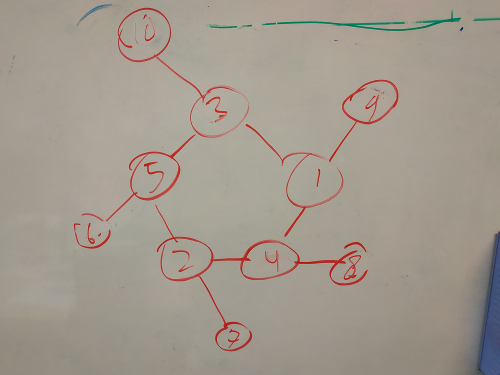 10
3
9
5
1
6
2
4
8
7